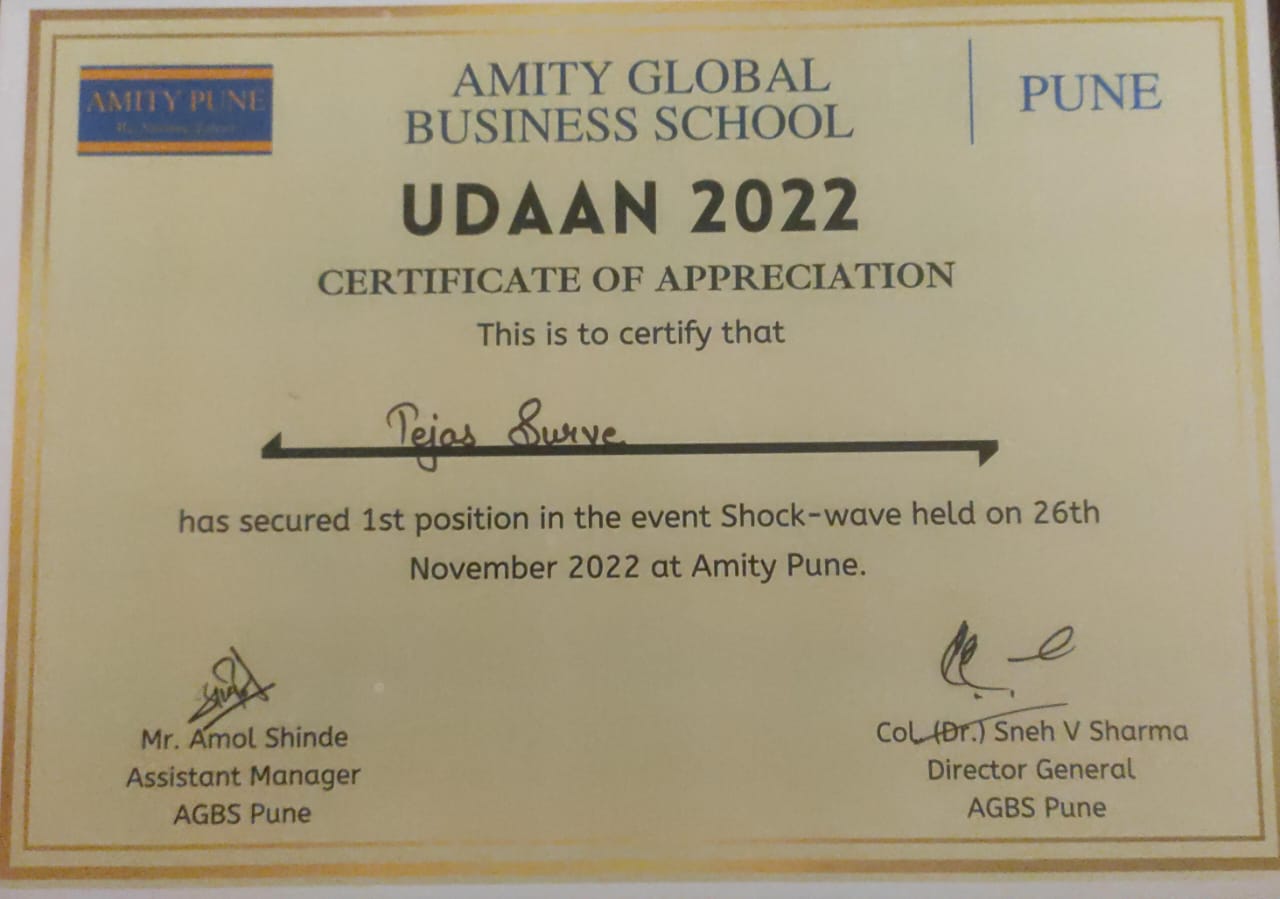 AMITY PUNE
AMITY GLOBAL
BUSINESS SCHOOL
PUNE
UDAAN 2022
CERTIFICATE OF APPRECIATION
This is to certify that
Tejas Surve
has secured 1st position in the event Shock-wave held on 26th
November 2022 at Amity Pune.
Mr. Amol Shinde
Assistant Manager
AGBS Pune
Col. (Dr.) Sneh V Sharma
Director General
AGBS Pune